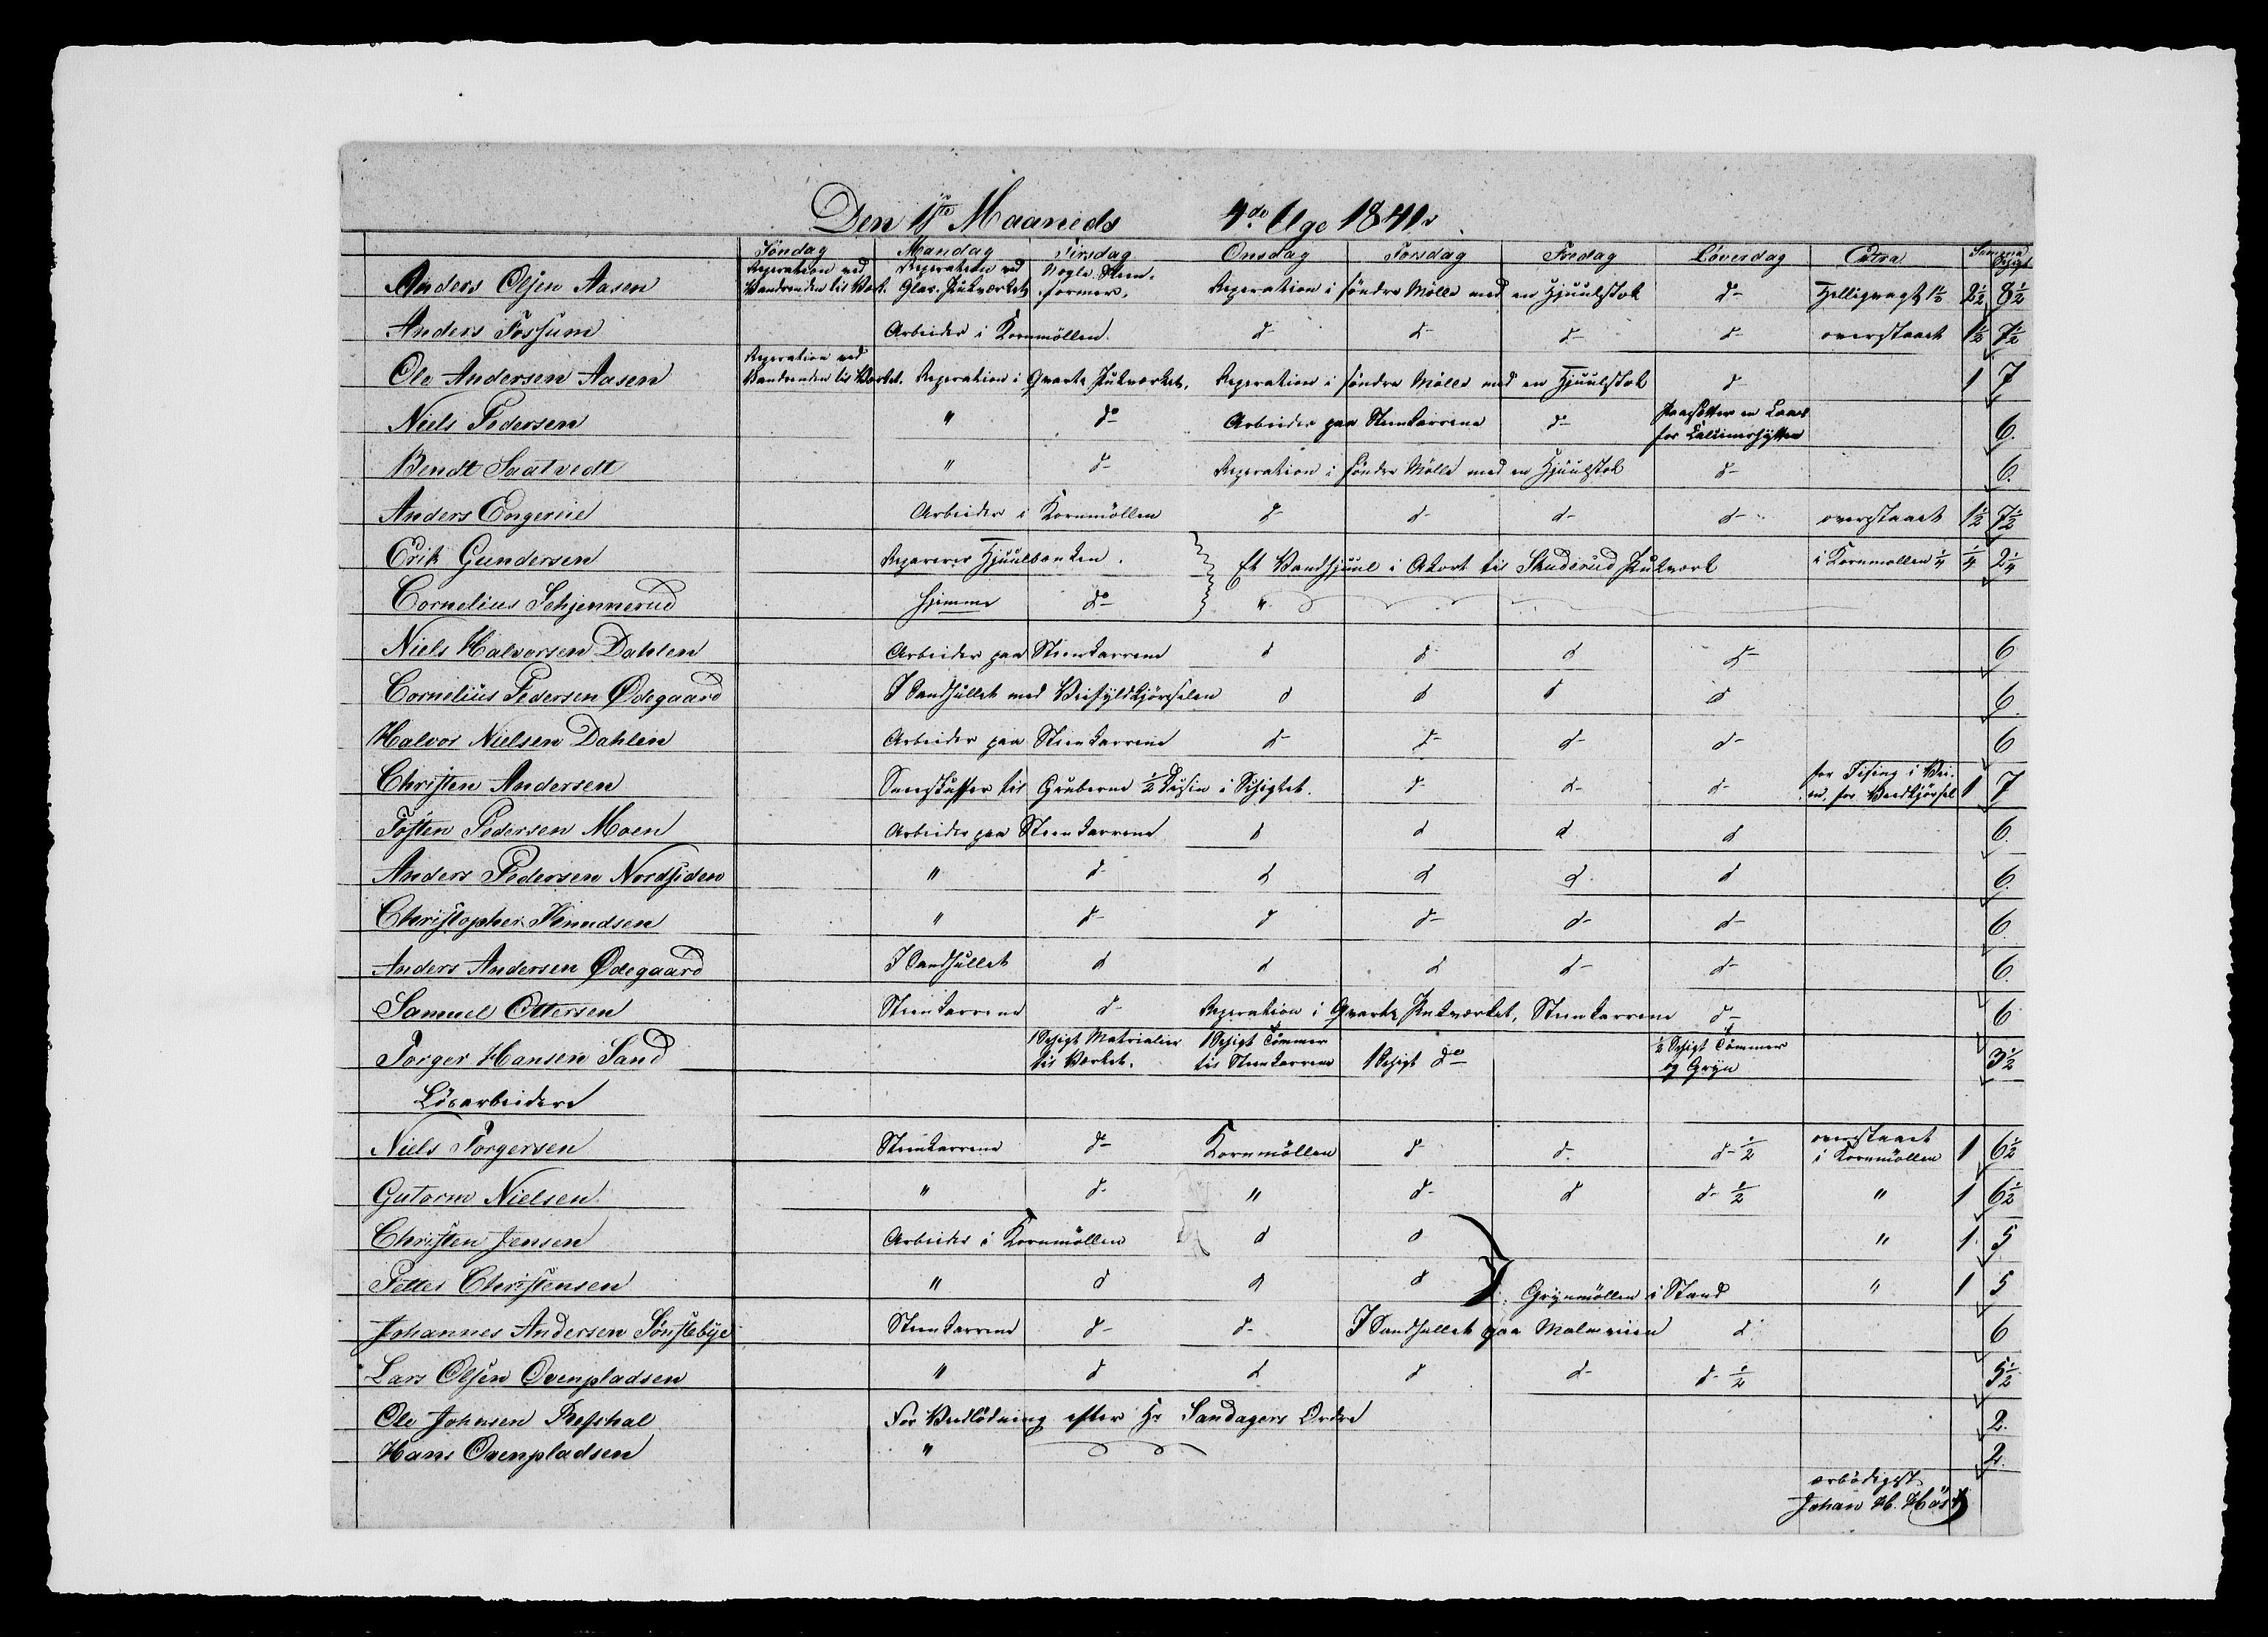 Den 1ste Maaneds 4de Uge 1841.
Søndag Mandag Tirsdag Onsdag Torsdag Fredag Løverdag Extra Summa Schigt
Anders Olsen Aasen Reperation ved Vandrenden til Værk. Reperation ved Glas. Pukværket Nogle Steen. former. Reperation i søndre Mølle med en Hjuulstok d- Helligvagt 1½ 2½ 8½
Anders Fossum Arbeider i Kornmøllen. d- d- d- d- overstaaet 1½ 7½
Ole Andersen Aasen Reperation ved Vandrenden til Værket. Reperation i Qvarts Pukværket. Reperation i søndre Mølle med en Hjuulstok d- 1 7
Niels Pedersen " do Arbeider paa Steenkarrene d- paasetter en Laas for Calcinerhytten 6.
Bendt Saatvedt " d- Reperation i søndre Mølle med en Hjuulstok d- 6.
Anders Engereie Arbeider i Kornmøllen d- d- d- d- overstaaet 1½ 7½
Erik Gundersen Reparerer Hjuulbanken. Et Vandhjuul i Akort til Skuderud Pukværk i Kornmøllen ¼ ¼ 2¼
Cornelius Schjennerud hjemme do "
Niels Halvorsen Dahlen Arbeider paa Steenkarrene d d- d d- 6
Cornelius Pedersen Ødegaard I Sandhullet med Veifyldkjørselen d d d d 6.
Halvor Nielsen Dahlen Arbeider paa Steenkarrene d- d- d- d- 6
Christen Andersen Sneeskuffer til Gruberne ½ Dusin i Schigtet. d- d- d- for Iising i Vei. en for Vedkjørsel 1 7
Tosten Pedersen Moen Arbeider paa Steenkarrene d d d d 6.
Anders Pedersen Nordsiden " d- d d d. d 6.
Christopher Knudsen " d- d d- d- d- 6.
Anders Andersen Ødegaard I Sandhullet d d d d- d- 6.
Samuel Ottersen Steenkarrene d- Reperation i Qvarts Pukværket, Steenkarrene d- 6
Torger Hansen Sand 1 Schigt Matrialier til Værket. 1 Schigt Tømmer til Steenkarrene 1 Schigt do ½ Schigt Tømmer og Gryn 3½
Løsarbeidere
Niels Torgersen Steenkarrene d- Kornmøllen d- d. d-½ overstaaet i Kornmøllen 1 6½
Gutorm Nielsen " d- " d- d d-½ " 1 6½
Christen Jensen Arbeider i Kornmøllen d d " 1. 5
Petter Christensen " d d d Grynmøllen i Stand " 1 5
Johannes Andersen Sønstebye Steenkarrene d- d- I Sandhullet paa Malmveien d. 6
Lars Olsen Ovenpladsen " d d d d- d-½ 5½
Ole Johnsen Refshal For Vedlødning efter Hr Sandagers Ordre 2.
Hans Ovenpladsen " 2.
ærbødigst
Johan H. Høst